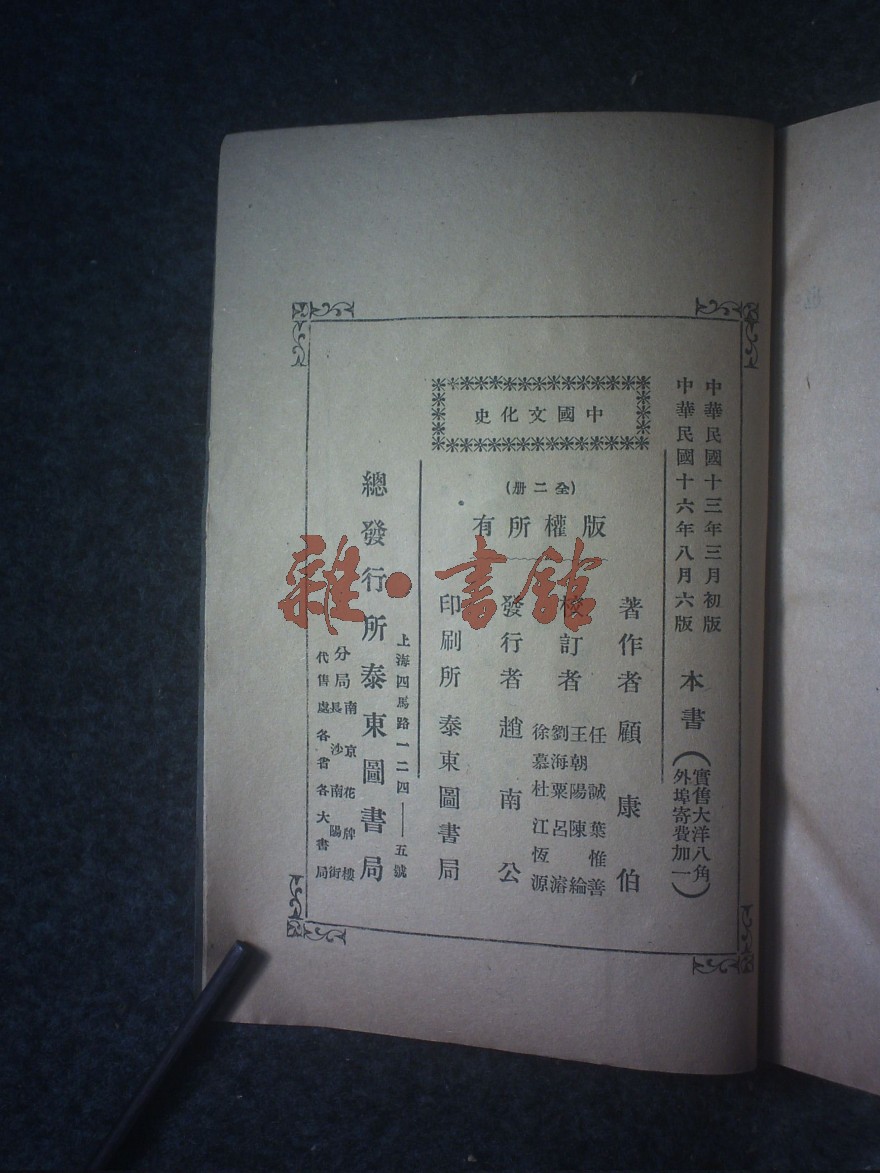 中華民國十三年三月初版
中華民國十六年八月六版
本書
實售大洋八角
外埠寄費加一
中國文化史
(全二册)
版權所有
著作者 顧康伯
校訂者
任誠 葉惟善
王朝陽 陳綸
劉海粟 呂濬
徐慕杜 江恆源
發行者 趙南公
印刷所 泰東圖書局
上海四馬路一二四——五號
總發行所 泰東圖書局
分局
南京花牌樓
長沙南陽街
代售處 各省各大書局
雜·書館